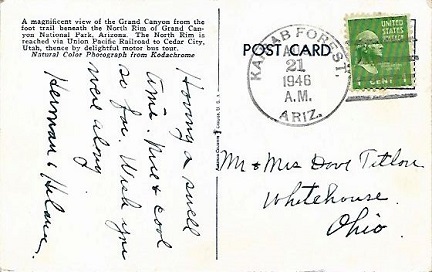 A magnificent view of the Grand Canyon from the
foot trail beneath the North Rim of Grand Can-
yon National Park, Arizona. The North Rim is
reached via Union Pacific Railroad to Cedar City,
Utah, thence by delightful motor bus tour.
Natural Color Photograph from Kodachrome
Having a swell
time. Nice & cool
so far. Wish you
were along
Herman & Helena.
POST CARD
KAIBAB FOREST,
AUG
21
1946
A.M.
ARIZ.
UNITED
STATES
POSTAGE
1 CENT 1
Mr & Mrs Dave Titlow
Whitehouse.
Ohio.